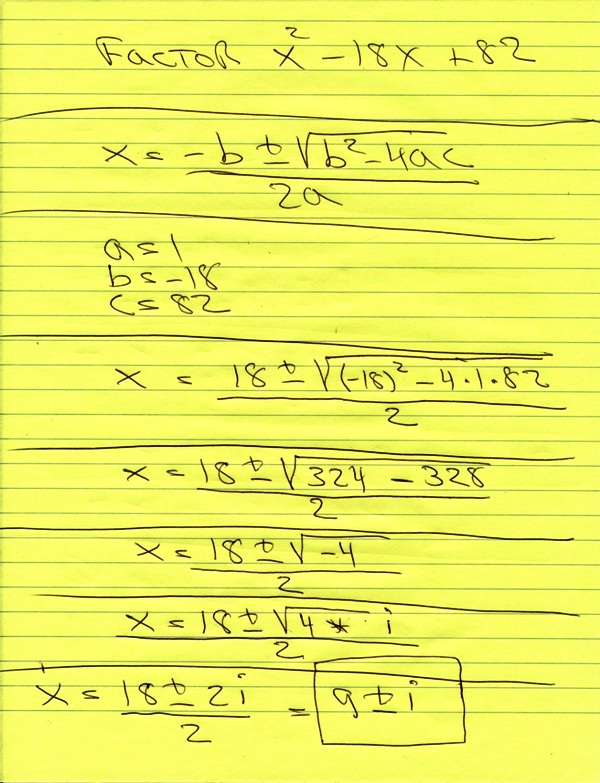 Factor x² - 18x + 82
x = -b ± √b² - 4ac
2a
a = 1
b = -18
c = 82
x = 18 ± √(-18)² - 4·1·82
2
x = 18 ± √324 - 328
2
x = 18 ± √-4
2
x = 18 ± √4 * i
2
x = 18 ± 2i = 9 ± i
2